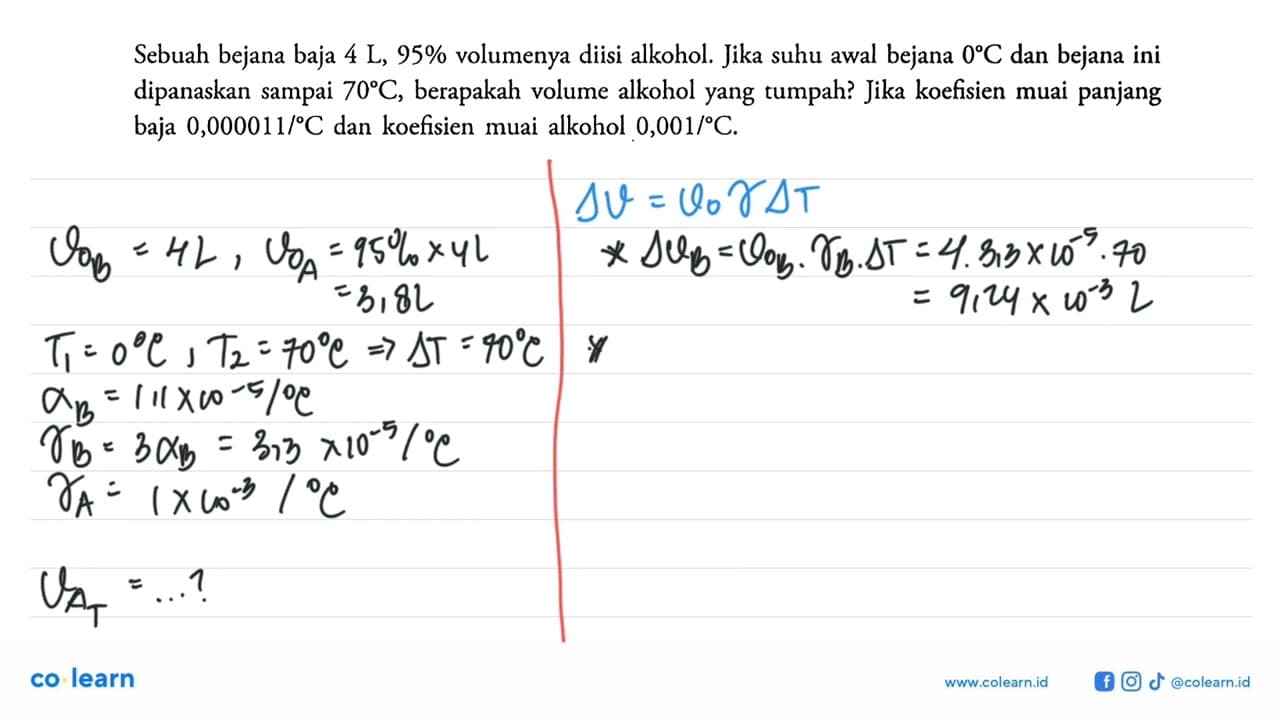 Sebuah bejana baja 4 L, 95% volumenya diisi alkohol. Jika suhu awal bejana 0°C dan bejana ini
dipanaskan sampai 70°C, berapakah volume alkohol yang tumpah? Jika koefisien muai panjang
baja 0,000011/°C dan koefisien muai alkohol 0,001/°C.
V₀B = 4L, V₀A = 95% × 4L
= 3,8L
T₁ = 0°C, T₂ = 70°C ⇒ ΔT = 70°C
αB = 1,1 × 10⁻⁵/°C
γB = 3αB = 3,3 × 10⁻⁵/°C
γA = 1 × 10⁻³/°C
VAT = ...?
ΔV = V₀ γ ΔT
* ΔVB = V₀B . γB . ΔT = 4 . 3,3 × 10⁻⁵ . 70
= 9,24 × 10⁻³ L
*
co learn
www.colearn.id
@colearn.id